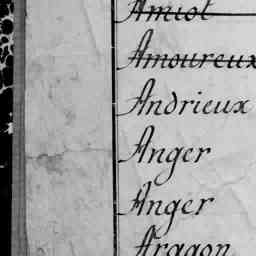 Amiot
Amoureux
Andrieux
Anger
Anger
Aragon